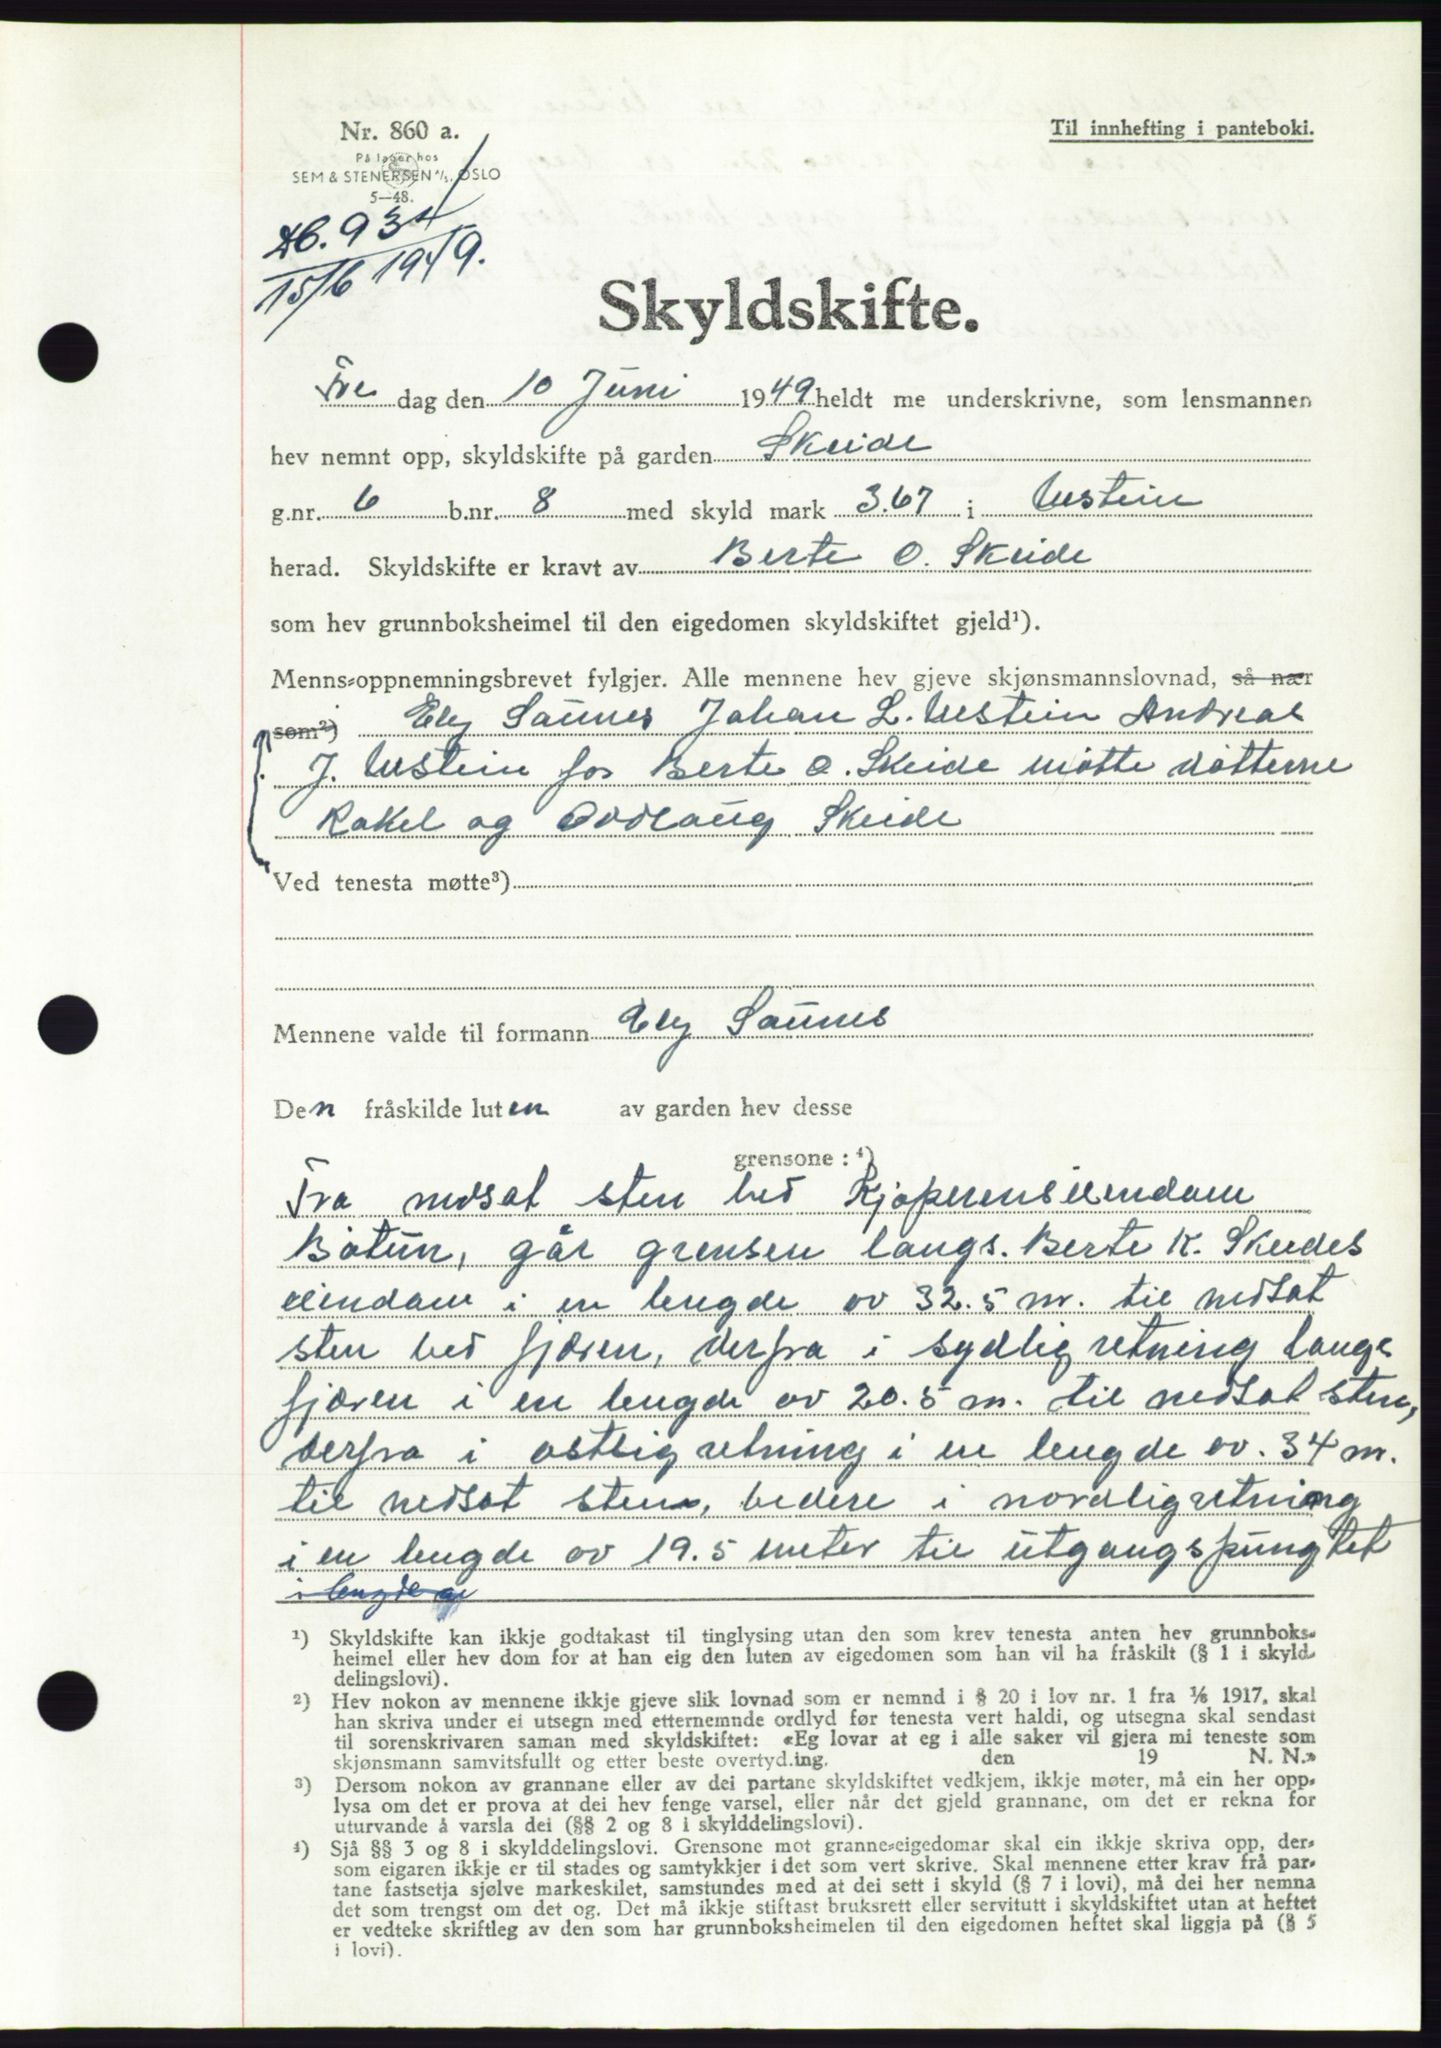 Nr. 860 a.
På lager hos
SEM & STENERSEN A/S, OSLO
5—48.
Til innhefting i panteboki.
Db. 934/
15/6 1949.
Skyldskifte.
Fre dag den 10 Juni 1949 heldt me underskrivne, som lensmannen
hev nemnt opp, skyldskifte på garden Skeide
g.nr. 6 b.nr. 8 med skyld mark 3.67 i Ulstein
herad. Skyldskifte er kravt av Berte O. Skeide
som hev grunnboksheimel til den eigedomen skyldskiftet gjeld¹).
Menns-oppnemningsbrevet fylgjer. Alle mennene hev gjeve skjønsmannslovnad, så nær
som²) Ely Saunes Johan L. Ulstein Andreas
J. Ulstein for Berte O. Skeide møtte døtterne
Rakel og Oddlaug Skeide
Ved tenesta møtte³)
Mennene valde til formann Ely Saunes
Den fråskilde luten av garden hev desse
grensone : ⁴)
Fra nedsat sten ved Kjøperens eiendom
Båtun, går grensen langs. Berte K. Skeides
eiendom i en lengde av 32.5 m. til nedsat
sten ved fjæren, derfra i sydlig retning langs
fjæren i en lengde av 20.5 m. til nedsat sten,
derfra i østlig retning i en lengde av. 34 m.
til nedsat sten, videre i nordlig retning
i en lengde av 19.5 meter til utgangspungtet
i lengde av
¹) Skyldskifte kan ikkje godtakast til tinglysing utan den som krev tenesta anten hev grunnboks-
heimel eller hev dom for at han eig den luten av eigedomen som han vil ha fråskilt (§ 1 i skyld-
delingslovi).
²) Hev nokon av mennene ikkje gjeve slik lovnad som er nemnd i § 20 i lov nr. 1 fra 1/6 1917, skal
han skriva under ei utsegn med etternemnde ordlyd før tenesta vert haldi, og utsegna skal sendast
til sorenskrivaren saman med skyldskiftet: «Eg lovar at eg i alle saker vil gjera mi teneste som
skjønsmann samvitsfullt og etter beste overtyding. den 19 N. N.»
³) Dersom nokon av grannane eller av dei partane skyldskiftet vedkjem, ikkje møter, må ein her opp-
lysa om det er prova at dei hev fenge varsel, eller når det gjeld grannane, om det er rekna for
uturvande å varsla dei (§§ 2 og 8 i skylddelingslovi).
⁴) Sjå §§ 3 og 8 i skylddelingslovi. Grensone mot granne-eigedomar skal ein ikkje skriva opp, der-
som eigaren ikkje er til stades og samtykkjer i det som vert skrive. Skal mennene etter krav frå par-
tane fastsetja sjølve markeskilet, samstundes med at dei sett i skyld (§ 7 i lovi), må dei her nemna
det som trengst om det og. Det må ikkje stiftast bruksrett eller servitutt i skyldskiftet utan at heftet
er vedteke skriftleg av den som har grunnboksheimelen til den eigedomen heftet skal liggja på (§ 5
i lovi).